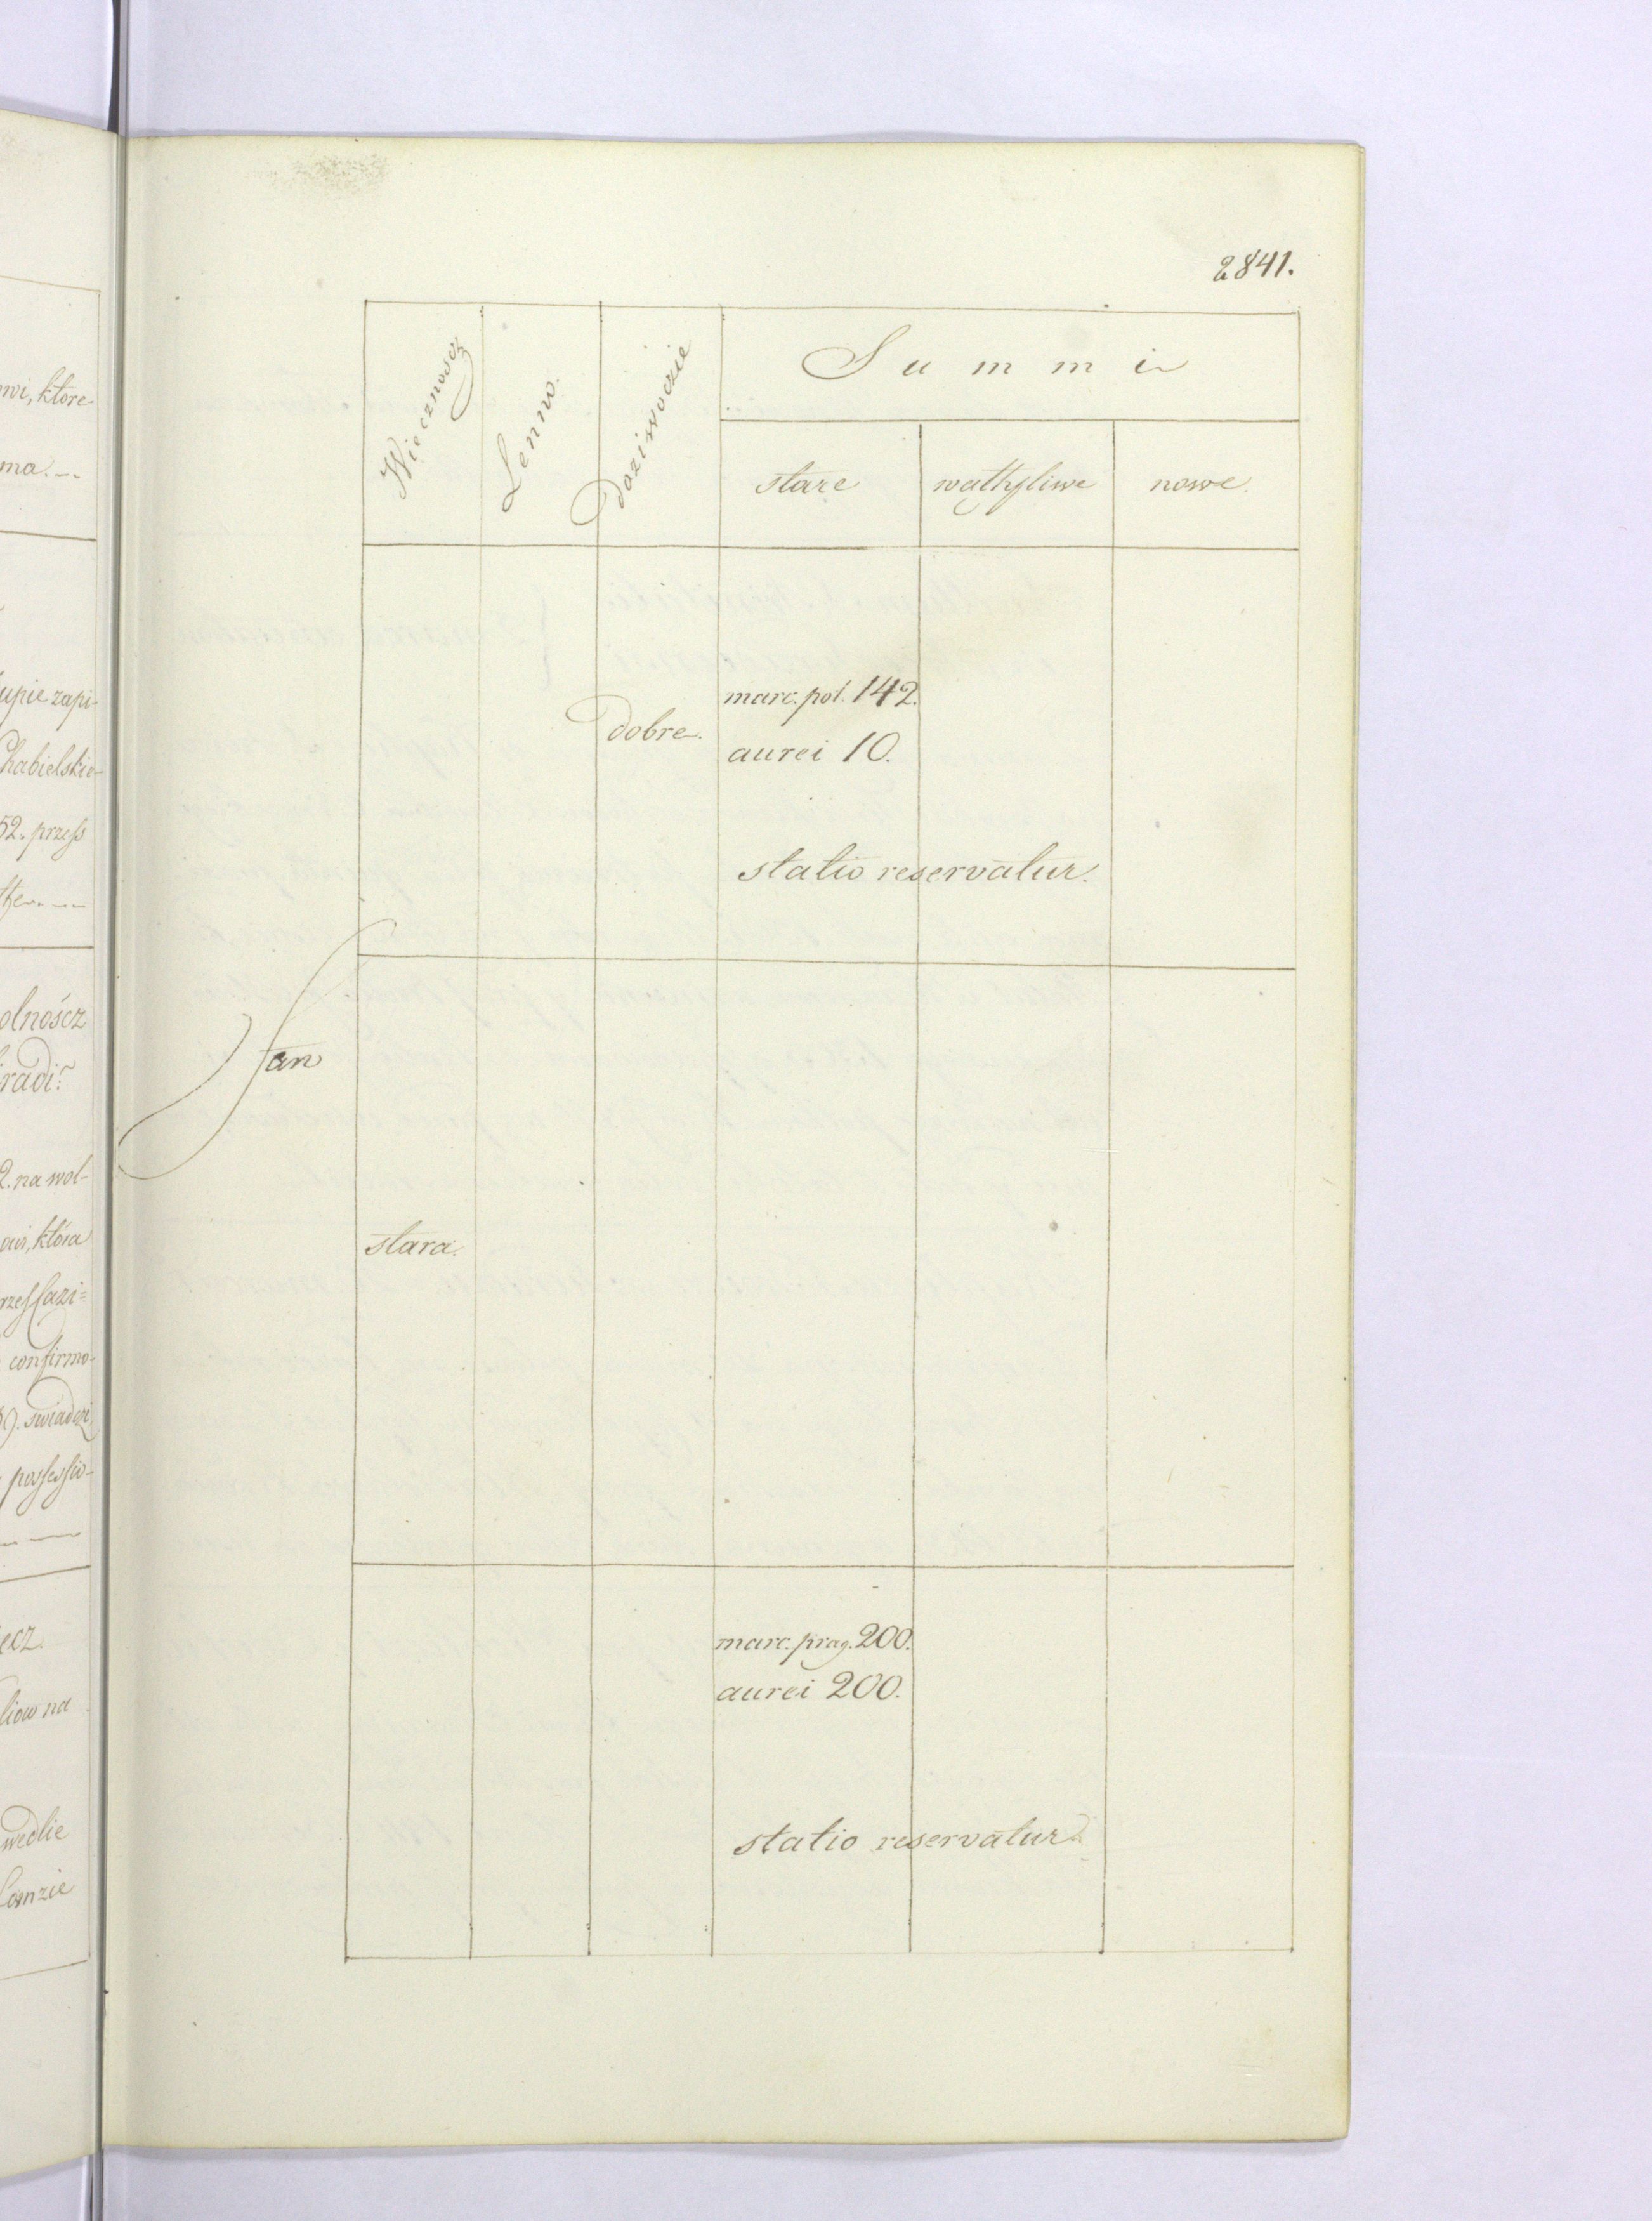 wi, ktore
ma.—
upie zapi-
Chabielskie-
52. przess
olnoścz
2. na wol-
która
Cazi=
confirmo-
swiadczi
possessio-
ecz.
liow na
wedlie
Lomzie
2841.
Wiecznoscz
Lenno.
Doziwoczie
Summi
stare
wathpliwe
nowe.
marc. pol. 142.
Dobre.
aurei 10.
statio reservatur.
Jan
stara.
marc. prag. 200.
aurei 200.
statio reservatur.